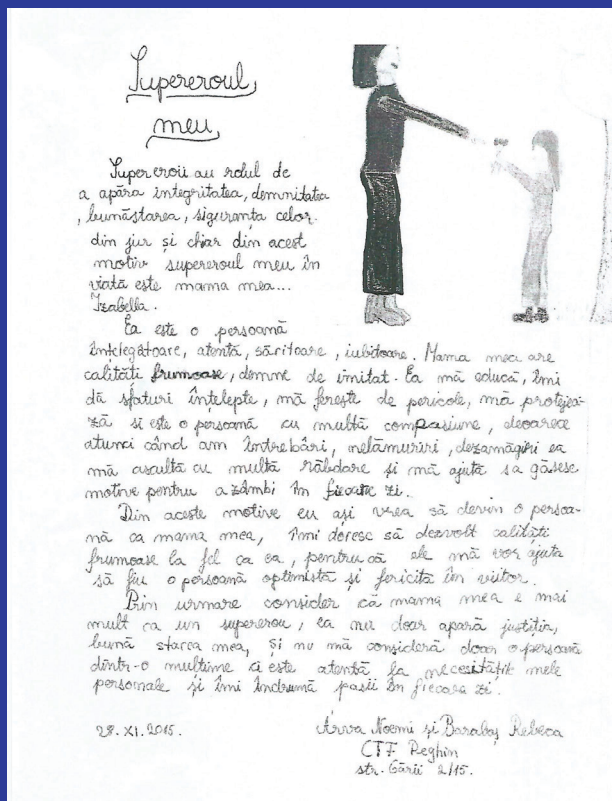 Supereroul
meu
Supereroii au rolul de
a apăra integritatea, demnitatea
, bunăstarea, siguranța celor
din jur și chiar din acest
motiv supereroul meu în
viată este mama mea...
Izabella.
Ea este o persoană
înțelegătoare, atentă, săritoare, iubitoare. Mama mea are
calități frumoase, demne de imitat. Ea mă educă, îmi
dă sfaturi înțelepte, mă ferește de pericole, mă protejea-
ză și este o persoană cu multă compasiune, deoarece
atunci când am întrebări, nelămuriri, dezamăgiri ea
mă ascultă cu multă răbdare și mă ajută sa găsesc
motive pentru a zâmbi în fiecare zi.
Din aceste motive eu ași vrea să devin o persoa-
nă ca mama mea, îmi doresc să dezvolt calități
frumoase la fel ca ea, pentru că ele mă vor ajuta
să fiu o persoană optimistă și fericită în viitor.
Prin urmare consider că mama mea e mai
mult ca un supererou, ea nu doar apară justiția,
bună starea mea, și nu mă consideră doar o persoană
dintr-o multime ci este atentă la necesitățile mele
personale și îmi îndrumă pasii în fiecare zi.
28. XI. 2015.
Arva Noemi și Barabaș Rebeca
CTF Reghin
str. Gării 2/15.